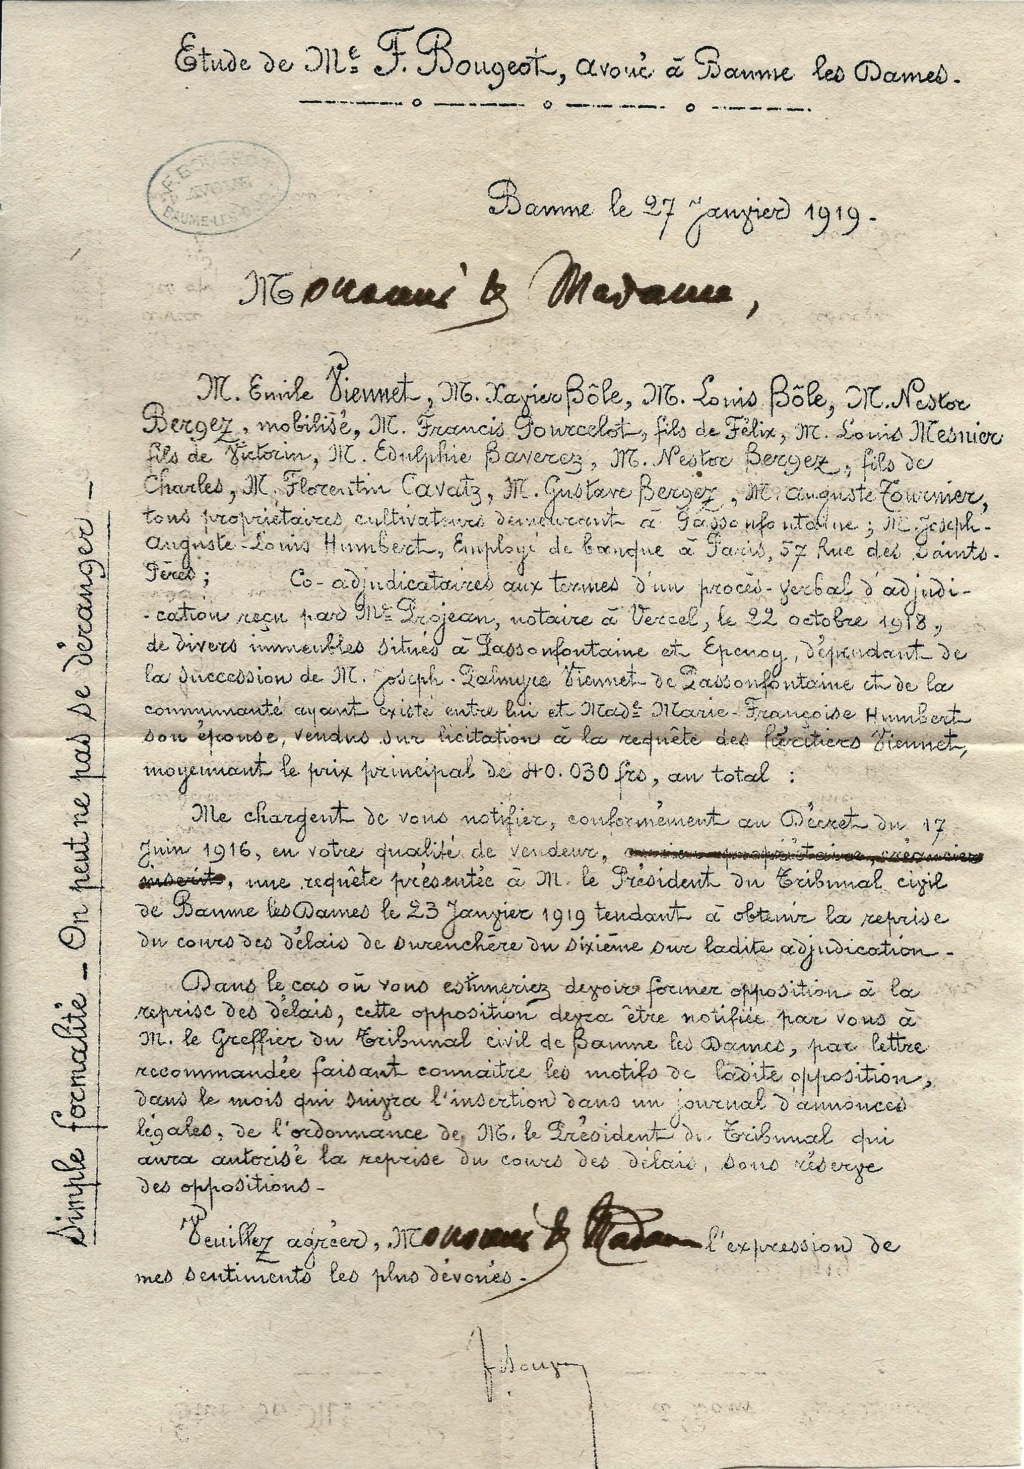 Etude de Me F. Bougeot, avoué à Baume les Dames.
F. BOUGEOT
AVOUÉ
BAUME-LES-DAMES
Baume le 27 Janvier 1919.
Monsieur & Madame,
M. Emile Viennet, M. Xavier Bôle, M. Louis Bôle, M. Nestor
Bergez, mobilisé, M. Francis Pourcelot, fils de Félix, M. Louis Mesnier
fils de Victorin, M. Edulphie Baverez, M. Nestor Bergez, fils de
Charles, M. Florentin Cavatz, M. Gustave Bergez, M. Auguste Tournier,
tous propriétaires cultivateurs demeurant à Passonfontaine; M. Joseph-
Auguste-Louis Humbert, Employé de banque à Paris, 57 Rue des Saints-
Pères; Co-adjudicataires aux termes d'un procès-verbal d'adjudi-
-cation reçu par Me Projean, notaire à Vercel, le 22 octobre 1918,
de divers immeubles situés à Passonfontaine et Epenoy, dépendant de
la succession de M. Joseph-Palmyre Viennet de Passonfontaine et de la
communauté ayant existé entre lui et Made Marie-Françoise Humbert
son épouse, vendus sur licitation à la requête des héritiers Viennet,
moyennant le prix principal de 40.030 frs, au total :
Me chargent de vous notifier, conformément au Décret du 17
Juin 1916, en votre qualité de vendeur, propriétaire, créancier
inscrit, une requête présentée à M. le Président du Tribunal civil
de Baume les Dames le 23 Janvier 1919 tendant à obtenir la reprise
du cours des délais de surenchère du sixième sur ladite adjudication.
Dans le cas où vous estimeriez devoir former opposition à la
reprise des délais, cette opposition devra être notifiée par vous à
M. le Greffier du Tribunal civil de Baume les Dames, par lettre
recommandée faisant connaitre les motifs de ladite opposition,
dans le mois qui suivra l'insertion dans un journal d'annonces
légales, de l'ordonnance de M. le Président du Tribunal qui
aura autorisé la reprise du cours des délais, sous réserve
des oppositions.
Veuillez agréer, Monsieur & Madame l'expression de
mes sentiments les plus dévoués.
Simple formalité - On peut ne pas se déranger -